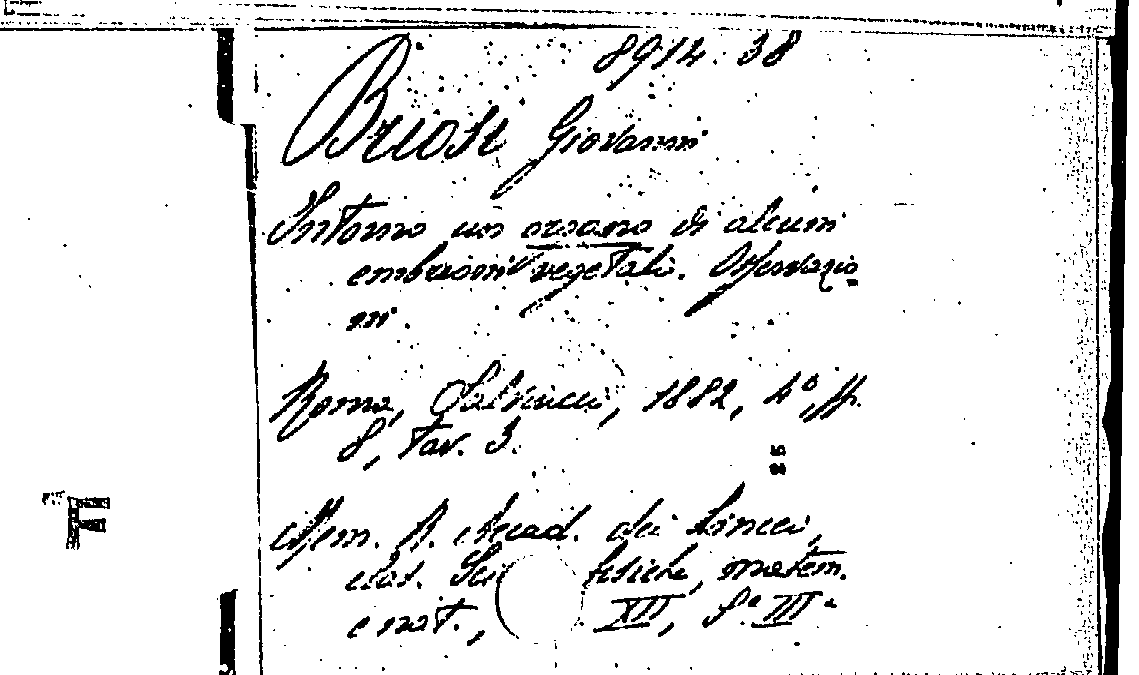 8914.38
Briosi Giovanni
Intorno un organo di alcuni
embrioni vegetali. Osservazio-
ni.
Roma, Salviucci, 1882, 4º, pp.
8, tav. 3.
25
Mem. R. Accad. dei Lincei,
clas. Sci fisiche, matem.
e nat., XII, S.ª III.ª
F